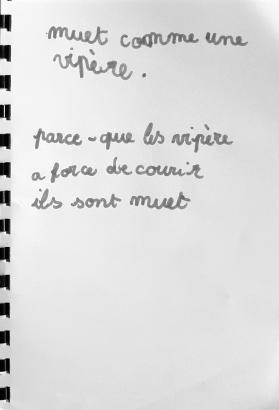 muet comme une
vipère.
parce-que les vipère
a force de courir
ils sont muet